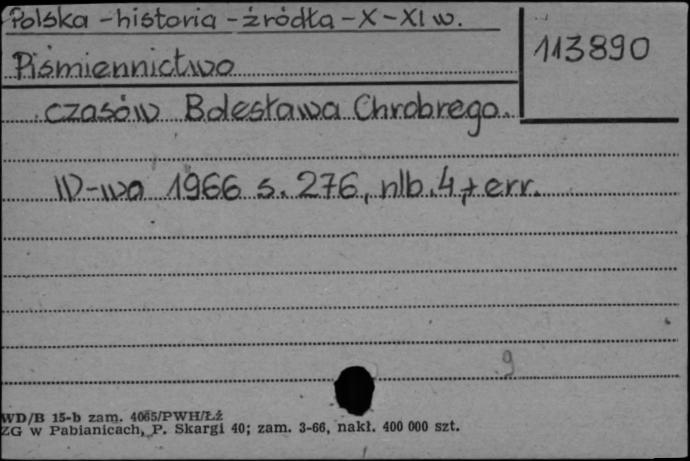 Polska - historia - źródła - X - XI w.
113890
Piśmiennictwo
czasów Bolesława Chrobrego.
W-wa 1966 s. 276, nlb. 4, + err.
9
WD/B 15-b zam. 4065/PWH/Łż
ZG w Pabianicach, P. Skargi 40; zam. 3-66, nakł. 400 000 szt.